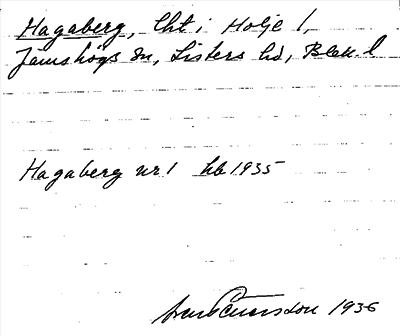 Hagaberg, lht i Holje 1,
Jämshögs sn, Listers hd, Blek. l
Hagaberg nr 1 hb 1935
1936